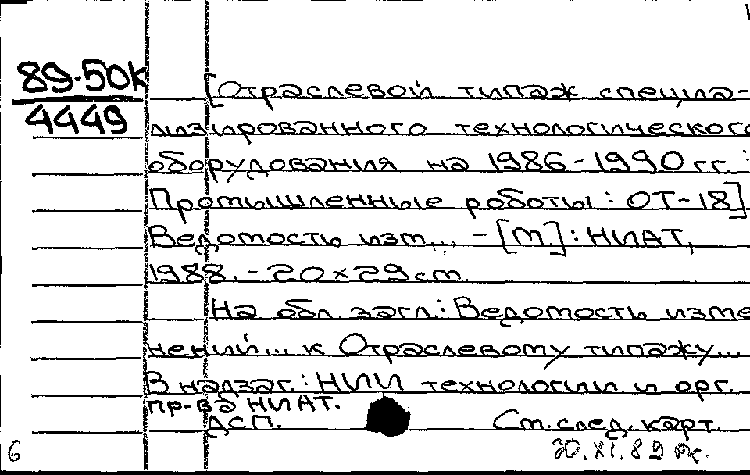 89-50к
4449
[Отраслевой типаж специа-
лизированного технологического
оборудования на 1986-1990 гг.:
Промышленные роботы: ОТ-18]
Ведомость изм... - [М.]: НИАТ,
1988. - 20×29 см
На обл. загл.: Ведомость изме
нений... к Отраслевому типажу...
В надзаг.: НИИ технологии и орг.
пр-ва НИАТ.
ДСП.
См. след. карт.
6
20.XI.89